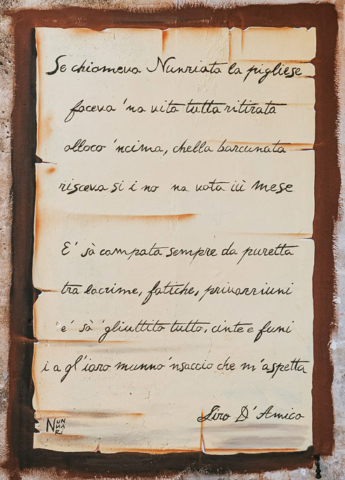 Se chiameva Nunziata la pigliese
faceva 'na vita tutta ritirata
alloco 'ncima, chella barcunata
risceva si i no na vota iii mese
E' sò campata sempre da puretta
tra lacrime, fatiche, privarriuni
e' sò 'gliuttito tutto, cinte e funi
i a gl'iaro munno 'nsaccio che m'aspetta
Livo D'Amico